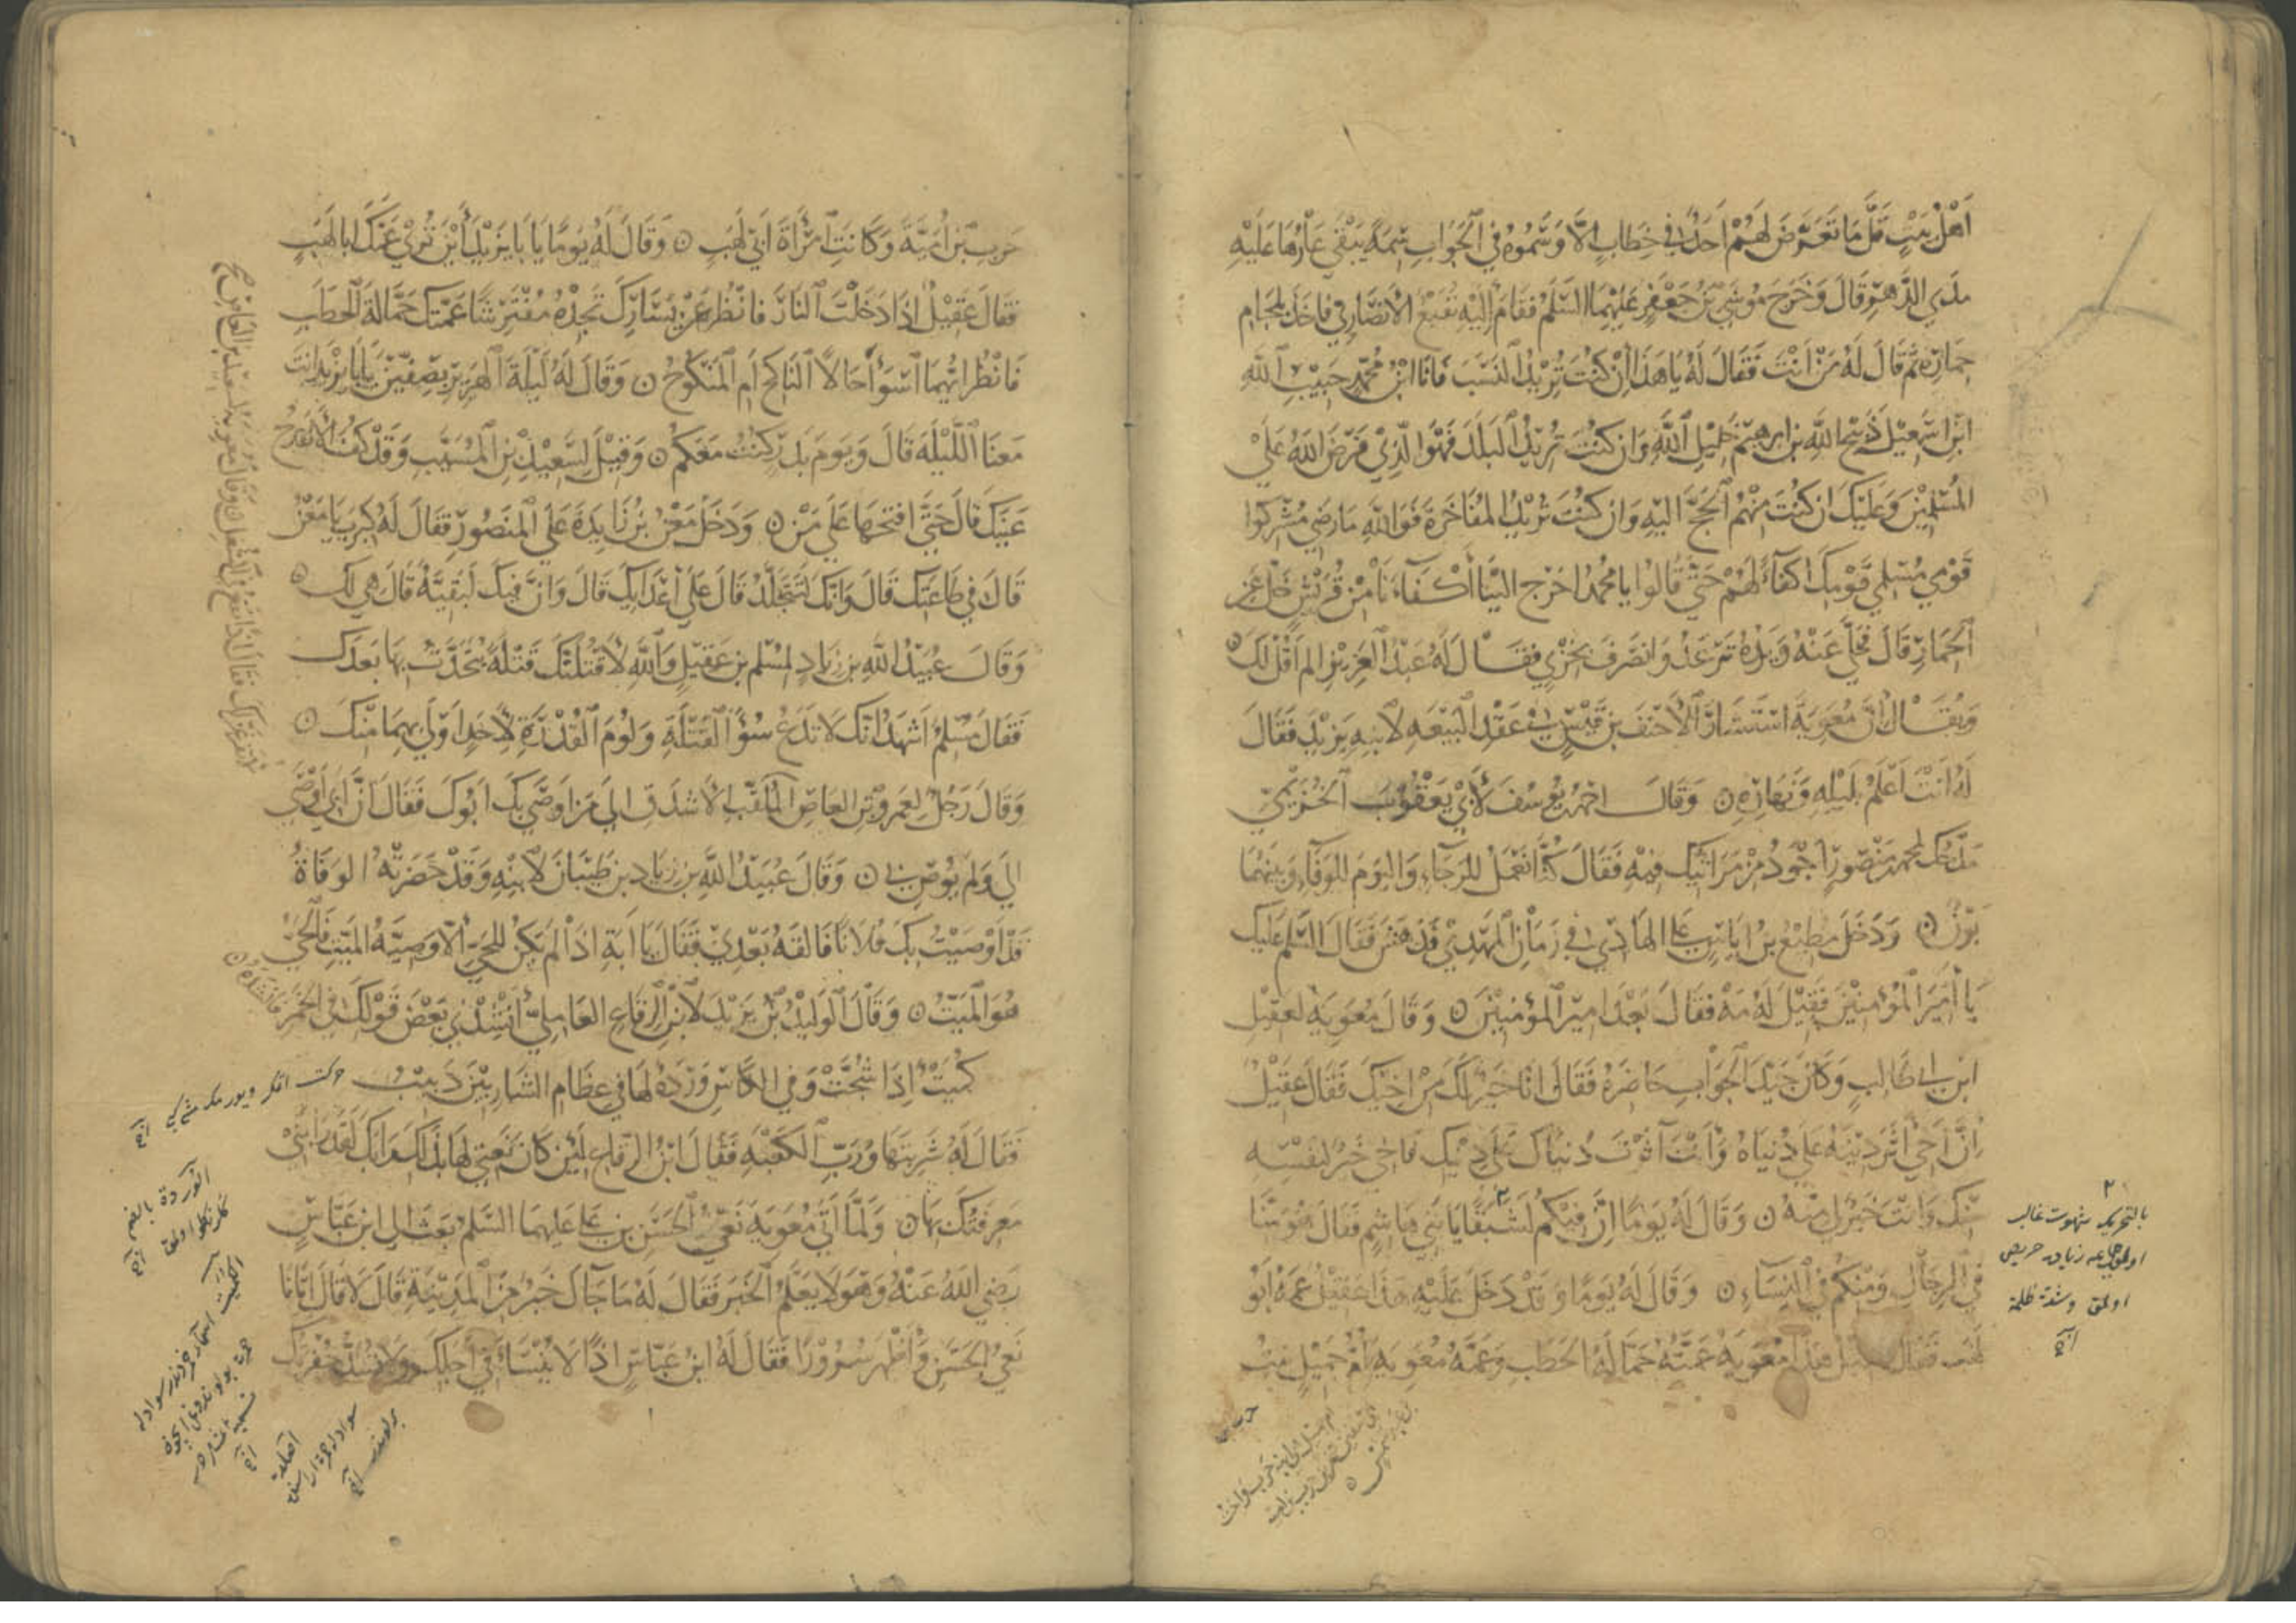 اَهْلُ بَيْتٍ قَلَّ مَا تَعَرَّضَ لَهُمْ اَحَدٌ فِي خِطَابٍ اِلَّا وَسَّمُوهُ فِي الْجَوَابِ سِمَةً يَبْقَى عَارُهَا عَلَيْهِ
مَدَى الدَّهْرِ قَالَ وَخَرَجَ مُوسَى بْنُ جَعْفَرٍ عَلَيْهِمَا السَّلَمُ فَقَامَ اِلَيْهِ نُفَيْعٌ الْاَنْصَارِي فَاَخَذَ بِلِجَامِ
حِمَارِهِ ثُمَّ قَالَ لَهُ مَنْ اَنْتَ فَقَالَ لَهُ يَا هَذَا اِنْ كُنْتَ تُرِيْدُ النَّسَبَ فَاَنَا ابْنُ مُحَمَّدٍ حَبِيْبِ اللّٰهِ
ابْنِ اِسْمَعِيْلَ ذَبِيْحِ اللّٰهِ بْنِ اِبْرَهِيْمَ خَلِيْلِ اللّٰهِ وَاِنْ كُنْتَ تُرِيْدُ الْبَلَدَ فَهُوَ الَّذِيْ فَرَضَ اللّٰهُ عَلَى
الْمُسْلِمِيْنَ وَعَلَيْكَ اِنْ كُنْتَ مِنْهُمْ الْحَجَّ اِلَيْهِ وَاِنْ كُنْتَ تُرِيْدُ الْمُفَاخَرَةَ فَوَاللّٰهِ مَا رَضِيَ مُشْرِكُوا
قَوْمِي مُسْلِمِي قَوْمِكَ اَكْفَاءً لَهُمْ حَتَّى قَالُوا يَا مُحَمَّدُ اخْرِجْ اِلَيْنَا اَكْفَاءَنَا مِنْ قُرَيْشٍ خَلِّ عَنِ
الْحِمَارِ قَالَ فَخَلَّى عَنْهُ وَيَدُهُ تَرْعَدُ وَانْصَرَفَ بِخِزْيٍ فَقَالَ لَهُ عَبْدُ الْعَزِيْزِ اَلَمْ اَقُلْ لَكَ ٥
وَيُقَالُ اَنَّ مُعَوِيَةَ اسْتَشَارَ الْاَحْنَفَ بْنَ قَيْسٍ فِي عَقْدِ الْبَيْعَةِ لِابْنِهِ يَزِيْدَ فَقَالَ
لَهُ اَنْتَ اَعْلَمُ بِلَيْلِهِ وَنَهَارِهِ ٥ وَقَالَ احمد يُوسُفَ لِاَبِيْ يَعْقُوبَ الْخُزَيْمِيّ
مَدْحُكَ لِمُحَمَّدِ مَنْصُورٍ اَجْوَدُ مِنْ مَرَاثِيْكَ فِيْهِ فَقَالَ كُنَّا نَعْمَلُ لِلرَّجَاءِ وَالْيَوْمَ لِلْوَفَاءِ وَبَيْنَهُمَا
بَوْنٌ ٥ وَدَخَلَ مُطِيْعُ بْنُ اِيَاسٍ عَلَى الْهَادِي فِي زَمَانِ الْمَهْدِيّ فَدَهِشَ فَقَالَ السَّلَمُ عَلَيْكَ
يَا اَمِيْرَ الْمُؤْمِنِيْنَ فَقِيْلَ لَهُ مَهْ فَقَالَ بَعْدَ اَمِيْرِ الْمُؤْمِنِيْنَ ٥ وَقَالَ مُعَوِيَةُ لِعَقِيْلِ
ابْنِ اَبِي طَالِبٍ وَكَانَ جَيِّدَ الْجَوَابِ حَاضِرَهُ فَقَالَ اَنَا خَيْرٌ لَكَ مِنْ اَخِيْكَ فَقَالَ عَقِيْلٌ
اِنَّ اَخِيْ اٰثَرَ دِيْنَهُ عَلَى دُنْيَاهُ وَاَنْتَ اٰثَرْتَ دُنْيَاكَ عَلَى دِيْنِكَ فَاَخِي خَيْرٌ لِنَفْسِهِ
مِنْكَ وَاَنْتَ خَيْرٌ لِي مِنْهُ ٥ وَقَالَ لَهُ يَوْمًا اِنَّ فِيْكُمْ لَشَبَقًا يَا بَنِي هَاشِمٍ فَقَالَ هُوَ مِنَّا
فِي الرِّجَالِ وَمِنْكُمْ فِي النِّسَاءِ ٥ وَقَالَ لَهُ يَوْمًا وَقَدْ دَخَلَ عَلَيْهِ هَذَا عَقِيْلٌ عَمُّهُ اَبُو
لَهَبٍ فَقَالَ عَقِيْلٌ هَذَا مُعَوِيَةُ عَمَّتُهُ حَمَّالَةُ الْحَطَبِ وَعَمَّةُ مُعَوِيَةَ اُمُّ جَمِيْلٍ بِنْتُ
حرب
٢
بالتحريك شهوت غالب
اولمق جماعه زياده حريص
اولمق وشدة ظلمة
حَرْبِ بْنِ اُمَيَّةَ وَكَانَتِ امْرَاَةَ اَبِي لَهَبٍ ٥ وَقَالَ لَهُ يَوْمًا يَا بَا يَزِيْدَ اَيْنَ تُرَى عَمَّكَ اَبَا لَهَبٍ
فَقَالَ عَقِيْلٌ اِذَا دَخَلْتَ النَّارَ فَانْظُرْ عَنْ يَسَارِكَ تَجِدْهُ مُفْتَرِشًا عَمَّتَكَ حَمَّالَةَ الْحَطَبِ
فَانْظُرْ اَيُّهُمَا اَسْوَأُ حَالًا النَّاكِحُ اَمِ الْمَنْكُوحُ ٥ وَقَالَ لَهُ لَيْلَةَ الْهَرِيْرِ بِصِفِّيْنَ يَا بَا يَزِيْدَ اَنْتَ
مَعَنَا اللَّيْلَةَ قَالَ وَيَوْمَ بَدْرٍ كُنْتُ مَعَكُمْ ٥ وَقِيْلَ لِسَعِيْدِ بْنِ الْمُسَيَّبِ وَقَدْ كُفَّ اَلَا تَقْدَحُ
عَيْنَكَ قَالَ حَتَّى اَفْتَحَهَا عَلَى مَنْ ٥ وَدَخَلَ مَعْنُ بْنُ زَايِدَةَ عَلَى الْمَنْصُورِ فَقَالَ لَهُ كَبِرْتَ يَا مَعْنُ
قَالَ فِي طَاعَتِكَ قَالَ وَاِنَّكَ لَتَتَجَلَّدُ قَالَ عَلَى اَعْدَايِكَ قَالَ وَاِنَّ فِيْكَ لَبَقِيَّةً قَالَ هِيَ لَكَ ٥
وَقَالَ عُبَيْدُ اللّٰهِ بْنُ زِيَادٍ لِمُسْلِمِ بْنِ عَقِيْلٍ وَاللّٰهِ لَاَقْتُلَنَّكَ قَتْلَةً يُتَحَدَّثُ بِهَا بَعْدَكَ
فَقَالَ مُسْلِمٌ اَشْهَدُ اَنَّكَ لَا تَدَعُ سُوءَ الْقِتْلَةِ وَلُؤْمَ الْقُدْرَةِ لِاَحَدٍ اَوْلَى بِهِمَا مِنْكَ ٥
وَقَالَ رَجُلٌ لِعَمْرِو بْنِ الْعَاصِ الْمُلَقَّبِ الْاَشْدَقِ اِلَى مَنْ اَوْصَى بِكَ اَبُوكَ فَقَالَ اِنَّ اَبِي اَوْصَى
اِلَيَّ وَلَمْ يُوصِ بِي ٥ وَقَالَ عُبَيْدُ اللّٰهِ بْنُ زِيَادِ بْنِ ظَبْيَانَ لِابْنِهِ وَقَدْ حَضَرَتْهُ الْوَفَاةُ
قَدْ اَوْصَيْتُ بِكَ فُلَانًا فَالْقَهُ بَعْدِيْ فَقَالَ يَا اَبَةِ اِذَا لَمْ يَكُنْ لِلْحَيِّ اِلَّا وَصِيَّةُ الْمَيِّتِ فَالْحَيُّ
هُوَ الْمَيِّتُ ٥ وَقَالَ الْوَلِيْدُ بْنُ يَزِيْدَ لِابْنِ الرِّقَاعِ الْعَامِلِيّ اَنْشِدْنِي بَعْضَ قَوْلِكَ فِي الْخَمْرِ فَاَنْشَدَهُ ٥
كُمَيْتٌ اِذَا شُجَّتْ وَفِي الْكَاْسِ وَرْدَةٌ لَهَا فِي عِظَامِ الشَّارِبِيْنَ دَبِيْبُ
فَقَالَ لَهُ شَرِبْتَهَا وَرَبِّ الْكَعْبَةِ فَقَالَ ابْنُ الرِّقَاعِ لَئِنْ كَانَ نَعْتِي لَهَا بِذَلِكَ رَابَكَ لَقَدْ رَابَنِيْ
مَعْرِفَتُكَ بِهَا ٥ وَلَمَّا اَتَى مُعَوِيَةَ نَعْيُ الْحَسَنِ بْنِ عَلِيٍّ عَلَيْهِمَا السَّلَمُ بَعَثَ اِلَى ابْنِ عَبَّاسٍ
رَضِيَ اللّٰهُ عَنْهُ وَهُوَ لَا يَعْلَمُ الْخَبَرَ فَقَالَ لَهُ مَا جَاَكَ خَبَرٌ مِنَ الْمَدِيْنَةِ قَالَ لَا قَالَ اَتَانَا
نَعْيُ الْحَسَنِ وَاَظْهَرَ سُرُوْرًا فَقَالَ لَهُ ابْنُ عَبَّاسٍ اِذًا لَا يُنْسَاُ فِي اَجَلِكَ وَلَا تُسَدُّ حُفْرَتُكَ